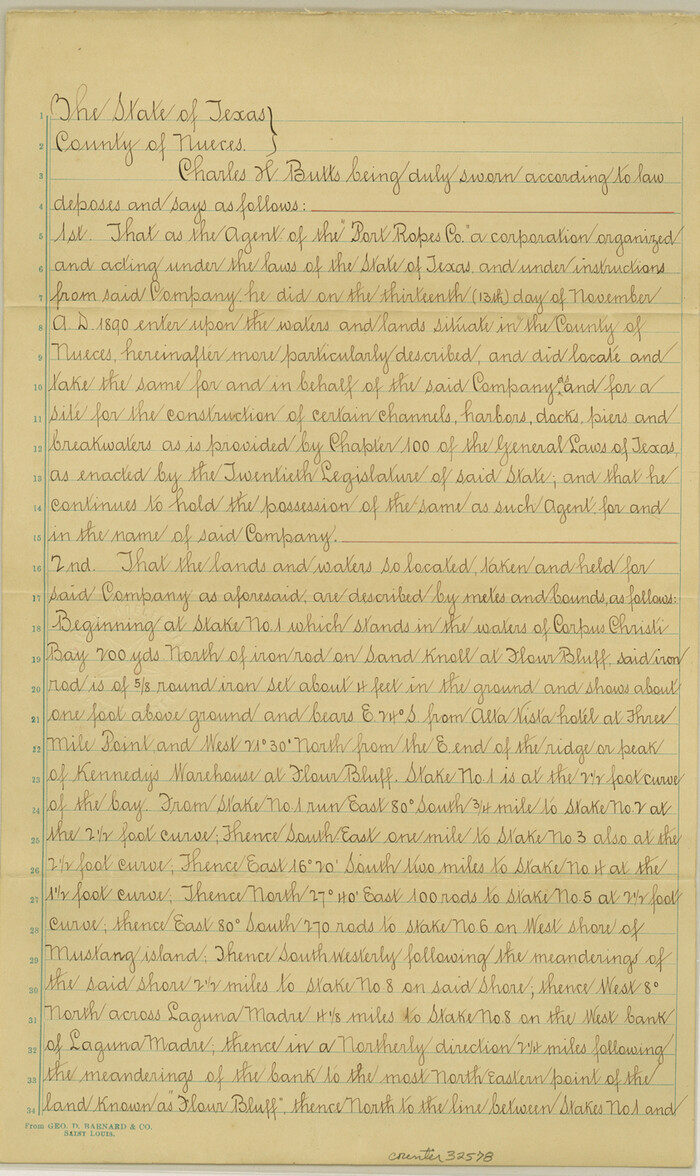 1 The State of Texas}
2 County of Nueces. }
3 Charles H Butts being duly sworn according to law
4 deposes and says as follows:
5 1st. That as the Agent of the "Port Ropes Co." a corporation organized
6 and acting under the laws of the State of Texas and under instructions
7 from said Company he did on the thirteenth (13th) day of November
8 A.D. 1890 enter upon the waters and lands situate in the County of
9 Nueces, hereinafter more particularly described, and did locate and
10 take the same for and in behalf of the said Company and for a
11 site for the construction of certain channels, harbors, docks, piers and
12 breakwaters as is provided by Chapter 100 of the General Laws of Texas,
13 as enacted by the Twentieth Legislature of said State; and that he
14 continues to hold the possession of the same as such Agent, for and
15 in the name of said Company.
16 2nd. That the lands and waters so located, taken and held for
17 said Company as aforesaid, are described by metes and bounds, as follows:
18 Beginning at Stake No. 1 which stands in the waters of Corpus Christi
19 Bay 200 yds North of iron rod on Sand Knoll at Flour Bluff, said iron
20 rod is of 5/8 round iron set about 4 feet in the ground and shows about
21 one foot above ground and bears E. 24° S from Alta Vista hotel at Three
22 Mile Point, and West 21° 30' North from the E. end of the ridge or peak
23 of Kennedy's Warehouse at Flour Bluff. Stake No. 1 is at the 2½ foot curve
24 of the bay. From Stake No. 1 run East 80° South ¾ mile to Stake No. 2 at
25 the 2½ foot curve; Thence South East one mile to Stake No. 3 also at the
26 2½ foot curve; Thence East 16° 20' South two miles to Stake No. 4 at the
27 1½ foot curve; Thence North 27° 40' East 100 rods to Stake No. 5 at 2½ foot
28 curve; thence East 80° South 270 rods to stake No. 6 on West shore of
29 Mustang island; Thence Southwesterly following the meanderings of
30 the said shore 2½ miles to Stake No. 8 on said Shore; thence West 8°
31 North across Laguna Madre 4⅛ miles to Stake No. 8 on the West bank
32 of Laguna Madre; thence in a Northerly direction 2¼ miles following
33 the meanderings of the bank to the most North Eastern point of the
34 land known as "Flour Bluff", thence North to the line between Stakes No. 1 and
From GEO. D. BARNARD & CO.
SAINT LOUIS.
counter 32578